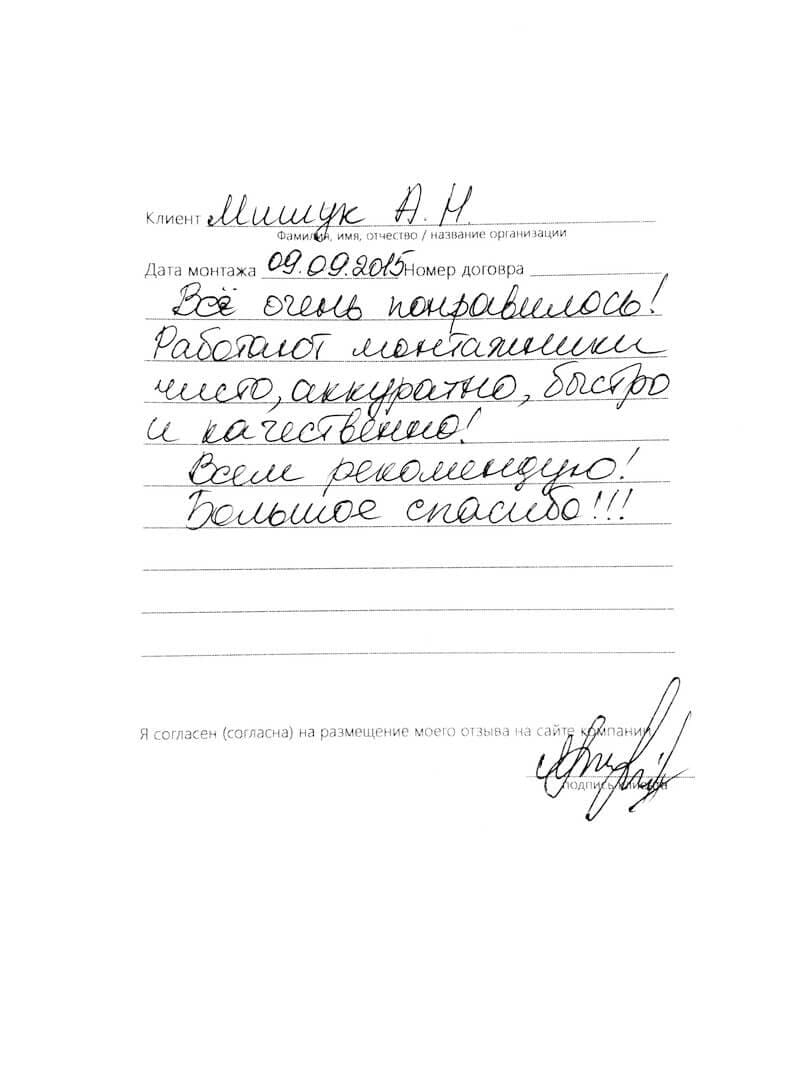 Клиент Мишук А. Н.
Фамилия, имя, отчество / название организации
Дата монтажа 09.09.2015 Номер договра
Всё очень понравилось!
Работают монтажники
чисто, аккуратно, быстро
и качественно!
Всем рекомендую!
Большое спасибо!!!
Я согласен (согласна) на размещение моего отзыва на сайте компании
подпись клиента